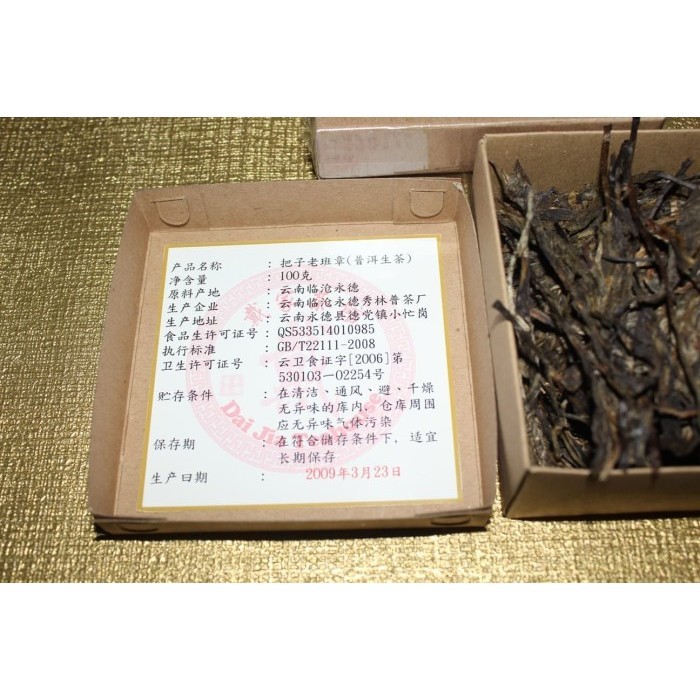 产品名称 : 把子老班章(普洱生茶)
净含量 : 100克
原料产地 : 云南临沧永德
生产企业 : 云南临沧永德秀林普茶厂
生产地址 : 云南永德县德党镇小忙岗
食品生许可证号 : QS533514010985
执行标准 : GB/T22111-2008
卫生许可证号 : 云卫食证字[2006]第
530103—02254号
贮存条件 : 在清洁、通风、避、干燥
无异味的库内，仓库周围
应无异味气体污染
保存期 : 在符合储存条件下，适宜
长期保存
生产日期 : 2009年3月23日
Dai